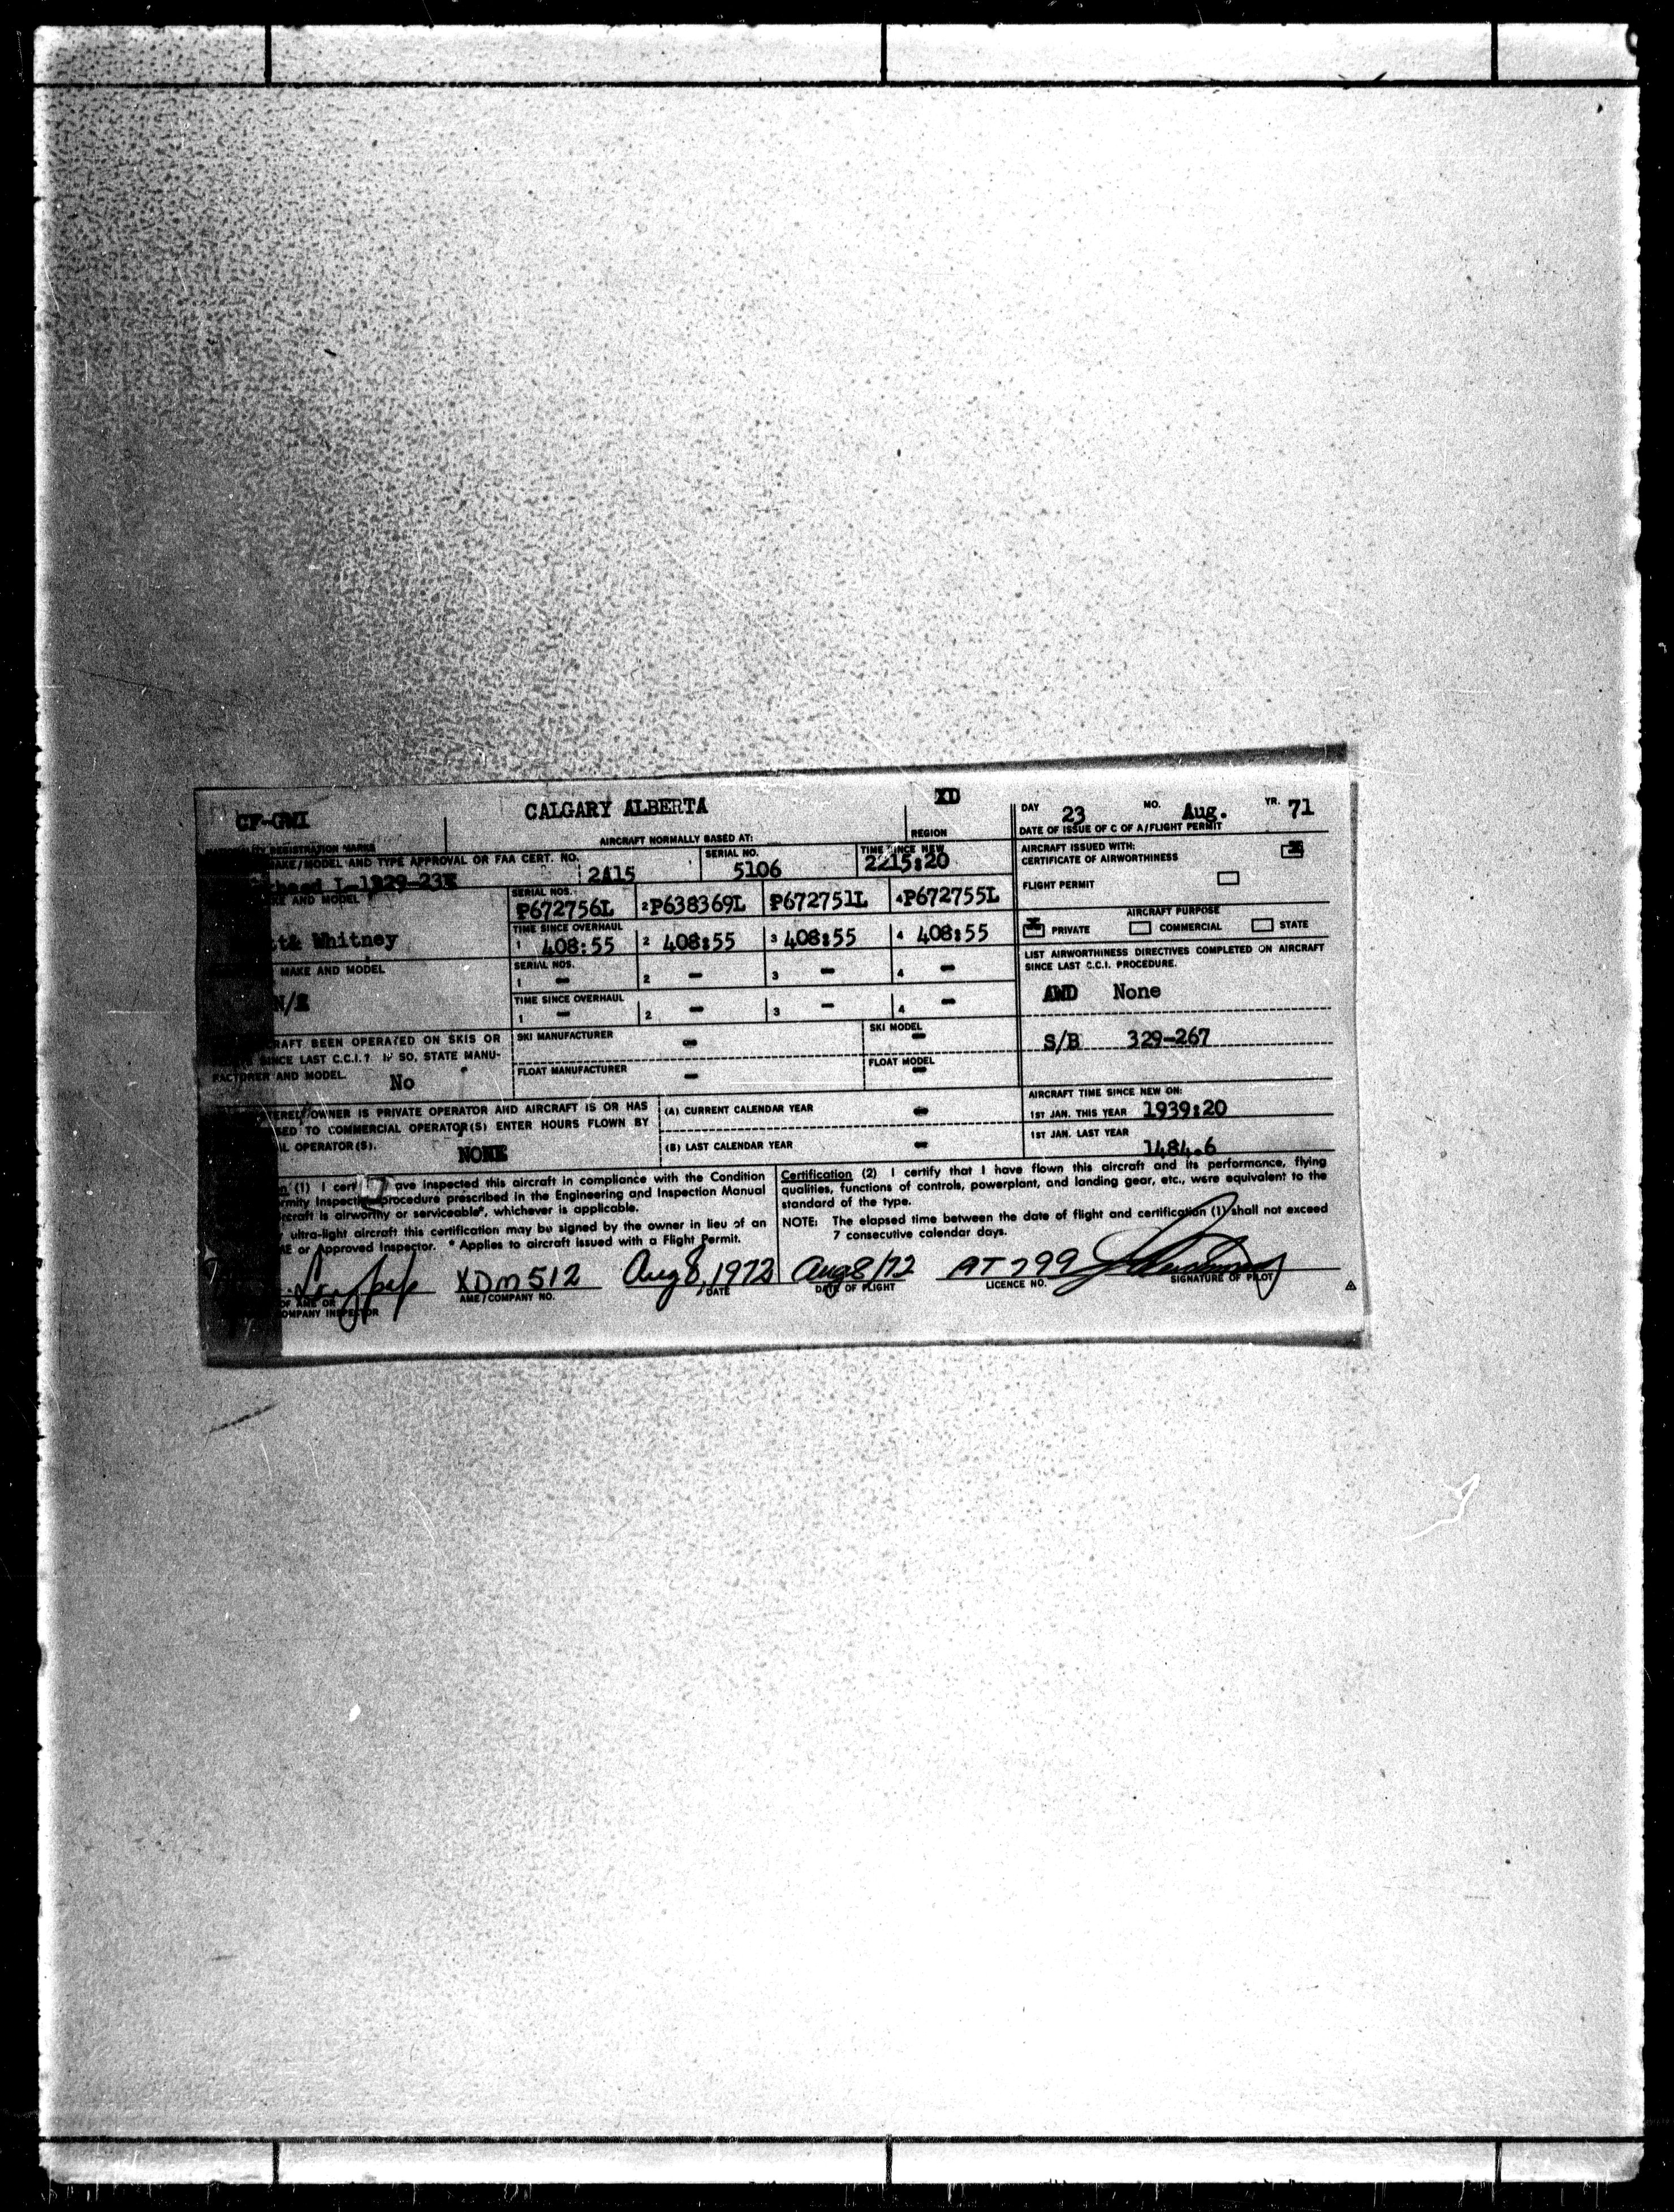 CF-GWI CALGARY ALBERTA XD DAY 23 MO. Aug. YR. 71
REGISTRATION MARKS AIRCRAFT NORMALLY BASED AT: REGION DATE OF ISSUE OF C OF A/FLIGHT PERMIT
MAKE/MODEL AND TYPE APPROVAL OR FAA CERT. NO. SERIAL NO. TIME SINCE NEW AIRCRAFT ISSUED WITH:
L-1329-23E 2A15 5106 2215:20 CERTIFICATE OF AIRWORTHINESS X
AND MODEL SERIAL NOS. FLIGHT PERMIT
P672756L 2 P638369L P672751L 4 P672755L
TIME SINCE OVERHAUL AIRCRAFT PURPOSE
Whitney 1 408:55 2 408:55 3 408:55 4 408:55 X PRIVATE COMMERCIAL STATE
MAKE AND MODEL SERIAL NOS. LIST AIRWORTHINESS DIRECTIVES COMPLETED ON AIRCRAFT
1 - 2 - 3 - 4 - SINCE LAST C.C.I. PROCEDURE.
TIME SINCE OVERHAUL AWD None
1 - 2 - 3 - 4 -
BEEN OPERATED ON SKIS OR SKI MANUFACTURER - SKI MODEL -
SINCE LAST C.C.I.? IF SO, STATE MANU- S/B 329-267
FACTURER AND MODEL. No FLOAT MANUFACTURER - FLOAT MODEL -
AIRCRAFT TIME SINCE NEW ON:
OWNER IS PRIVATE OPERATOR AND AIRCRAFT IS OR HAS (A) CURRENT CALENDAR YEAR - 1ST JAN. THIS YEAR 1939:20
TO COMMERCIAL OPERATOR(S) ENTER HOURS FLOWN BY
OPERATOR(S). NONE (B) LAST CALENDAR YEAR - 1ST JAN. LAST YEAR 1484.6
(1) I cert ave inspected this aircraft in compliance with the Condition
procedure prescribed in the Engineering and Inspection Manual
is airworthy or serviceable*, whichever is applicable.
ultra-light aircraft this certification may be signed by the owner in lieu of an
AME or Approved Inspector. * Applies to aircraft issued with a Flight Permit.
Certification (2) I certify that I have flown this aircraft and its performance, flying
qualities, functions of controls, powerplant, and landing gear, etc., were equivalent to the
standard of the type.
NOTE: The elapsed time between the date of flight and certification (1) shall not exceed
7 consecutive calendar days.
XDM512 Aug 8, 1972 Aug 8/72 AT 799
OF AME OR AME/COMPANY NO. DATE DATE OF FLIGHT LICENCE NO. SIGNATURE OF PILOT
COMPANY INSPECTOR